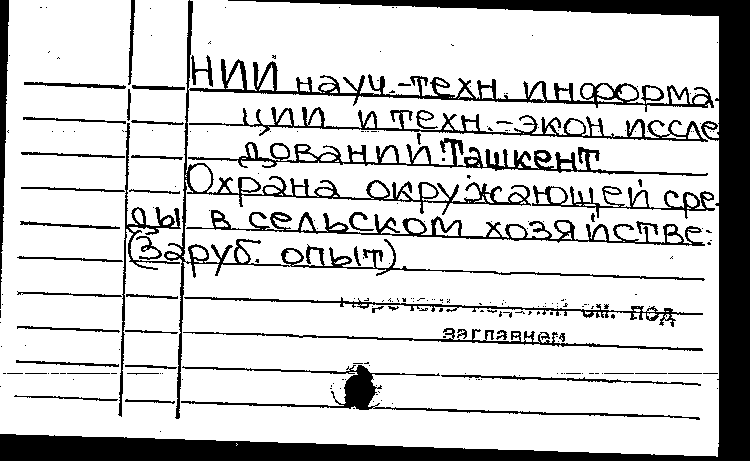 НИИ науч.-техн. информа-
ции и техн.-экон. иссле
дований. Ташкент
Охрана окружающей сре-
ды в сельском хозяйстве:
(Заруб. опыт).
Перечень изданий см. под
заглавием